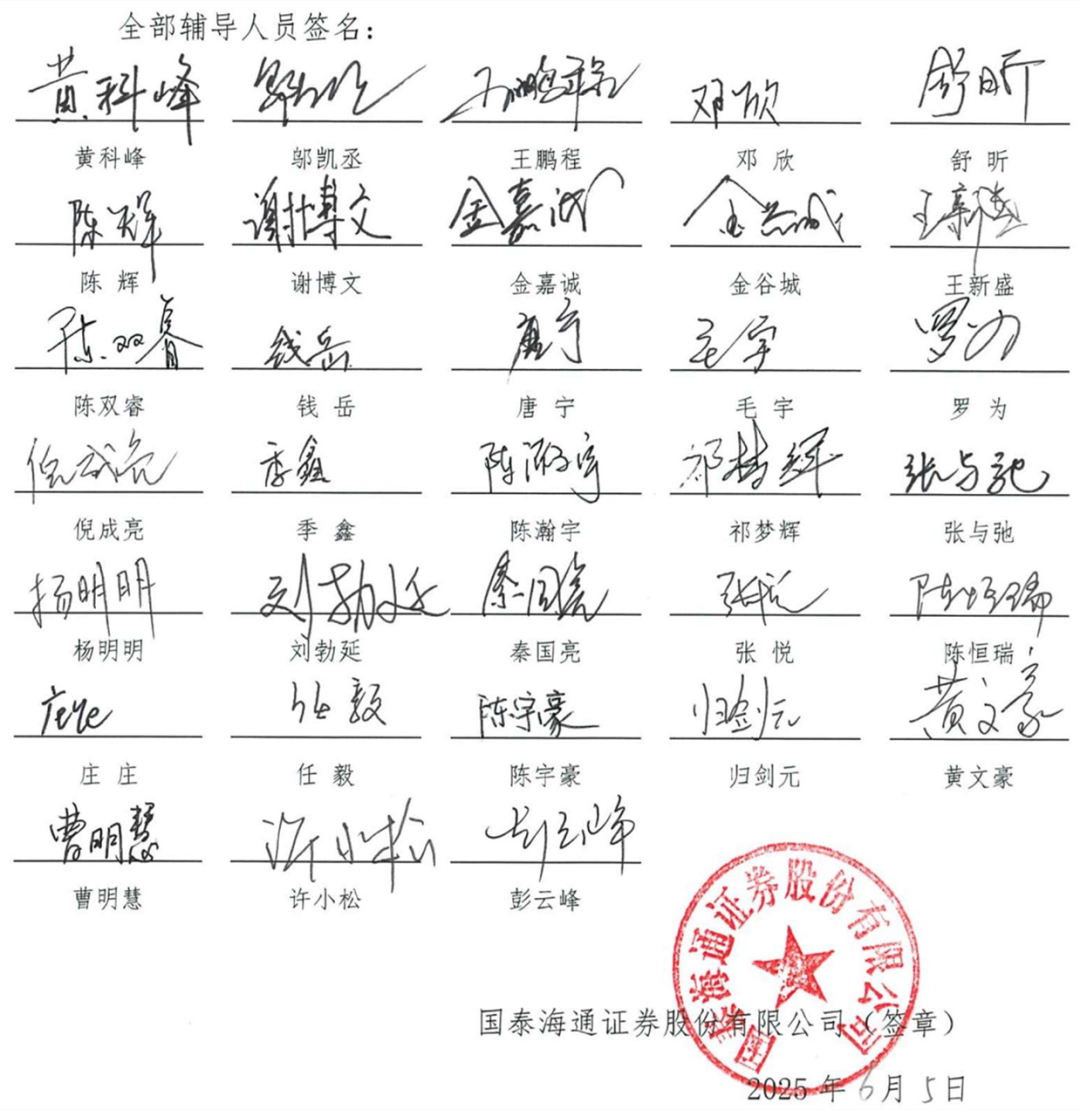 全部辅导人员签名：
黄科峰 邬凯丞 王鹏程 邓欣 舒昕
黄科峰 邬凯丞 王鹏程 邓 欣 舒 昕
陈辉 谢博文 金嘉诚 金谷城 王新盛
陈 辉 谢博文 金嘉诚 金谷城 王新盛
陈双睿 钱岳 唐宁 毛宇 罗为
陈双睿 钱 岳 唐 宁 毛 宇 罗 为
倪成亮 季鑫 陈瀚宇 祁梦辉 张与弛
倪成亮 季 鑫 陈瀚宇 祁梦辉 张与弛
杨明明 刘勃延 秦国亮 张悦 陈恒瑞
杨明明 刘勃延 秦国亮 张 悦 陈恒瑞
庄庄 任毅 陈宇豪 归剑元 黄文豪
庄 庄 任 毅 陈宇豪 归剑元 黄文豪
曹明慧 许小松 彭云峰
曹明慧 许小松 彭云峰
国泰海通证券股份有限公司
国泰海通证券股份有限公司（签章）
2025 年 6 月 5 日